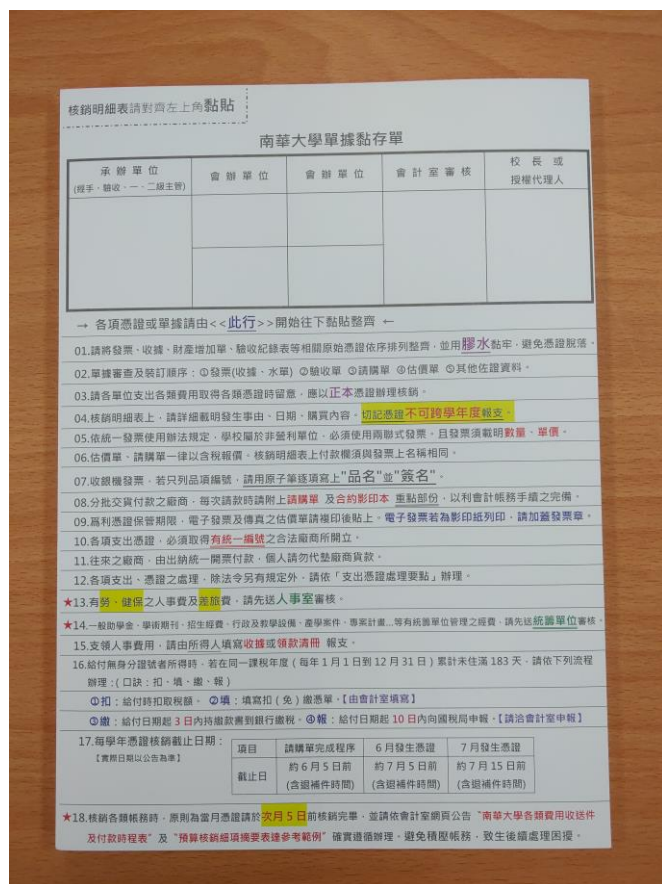 核銷明細表請對齊左上角黏貼
南華大學單據黏存單
承辦單位
(經手、驗收、一、二級主管)
會辦單位
會辦單位
會計室審核
校長或
授權代理人
→ 各項憑證或單據請由<<此行>>開始往下黏貼整齊 ←
01.請將發票、收據、財產增加單、驗收紀錄表等相關原始憑證依序排列整齊，並用膠水黏牢，避免憑證脫落。
02.單據審查及裝訂順序：①發票(收據、水單) ②驗收單 ③請購單 ④估價單 ⑤其他佐證資料。
03.請各單位支出各類費用取得各類憑證時留意，應以正本憑證辦理核銷。
04.核銷明細表上，請詳細載明發生事由、日期、購買內容。切記憑證不可跨學年度報支。
05.依統一發票使用辦法規定，學校屬於非營利單位，必須使用兩聯式發票，且發票須載明數量、單價。
06.估價單、請購單一律以含稅報價。核銷明細表上付款欄須與發票上名稱相同。
07.收銀機發票，若只列品項編號，請用原子筆逐項寫上"品名"並"簽名"。
08.分批交貨付款之廠商，每次請款時請附上請購單 及合約影印本 重點部份，以利會計帳務手續之完備。
09.爲利憑證保管期限，電子發票及傳真之估價單請複印後貼上。電子發票若為影印紙列印，請加蓋發票章。
10.各項支出憑證，必須取得有統一編號之合法廠商所開立。
11.往來之廠商，由出納統一開票付款，個人請勿代墊廠商貨款。
12.各項支出、憑證之處理，除法令另有規定外，請依「支出憑證處理要點」辦理。
★13.有勞、健保之人事費及差旅費，請先送人事室審核。
★14.一般助學金、學術期刊、招生經費、行政及教學設備、產學案件、專案計畫...等有統籌單位管理之經費，請先送統籌單位審核。
15.支領人事費用，請由所得人填寫收據或領款清冊 報支。
16.給付無身分證號者所得時，若在同一課稅年度（每年 1 月 1 日到 12 月 31 日）累計未住滿 183 天，請依下列流程
辦理：(口訣：扣、填、繳、報)
①扣：給付時扣取稅額。 ②填：填寫扣（免）繳憑單。【由會計室填寫】
③繳：給付日期起 3 日內持繳款書到銀行繳稅。④報：給付日期起 10 日內向國稅局申報。【請洽會計室申報】
17.每學年憑證核銷截止日期：
【實際日期以公告為準】
項目 請購單完成程序 6 月發生憑證 7 月發生憑證
截止日 約 6 月 5 日前 約 7 月 5 日前 約 7 月 15 日前
(含退補件時間) (含退補件時間) (含退補件時間)
★18.核銷各類帳務時，原則為當月憑證請於次月 5 日前核銷完畢，並請依會計室網頁公告 "南華大學各類費用收送件
及付款時程表" 及 "預算核銷細項摘要表達參考範例" 確實遵循辦理，避免積壓帳務，致生後續處理困擾。